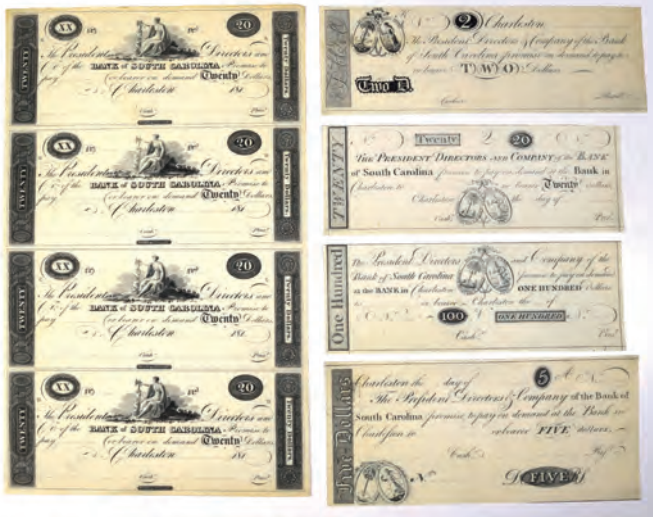 XX
20
TWENTY
The President Directors and
Co. of the BANK of SOUTH CAROLINA Promise to
pay or bearer on demand Twenty Dollars
Charleston 181
Cash.
Pres.
XX
20
TWENTY
The President Directors and
Co. of the BANK of SOUTH CAROLINA Promise to
pay or bearer on demand Twenty Dollars
Charleston 181
Cash.
Pres.
XX
20
TWENTY
The President Directors and
Co. of the BANK of SOUTH CAROLINA Promise to
pay or bearer on demand Twenty Dollars
Charleston 181
Cash.
Pres.
XX
20
TWENTY
The President Directors and
Co. of the BANK of SOUTH CAROLINA Promise to
pay or bearer on demand Twenty Dollars
Charleston 181
Cash.
Pres.
2 Charleston
The President Directors & Company of the Bank
of South Carolina promise on demand to pay to
or bearer TWO Dollars
Two D.
Cashier
Twenty 20
TWENTY
THE PRESIDENT DIRECTORS AND COMPANY of the BANK
of South Carolina promise to pay on demand at the Bank in
Charleston to or bearer Twenty dollars
Charleston the day of
Cash.
Pres.
One Hundred
The President Directors and Company of the
Bank of South Carolina promise to pay on demand
at the BANK in Charleston ONE HUNDRED Dollars
to or bearer Charleston the of
100 ONE HUNDRED
Cash.
Pres.
Five Dollars
Charleston the day of 5
The President Directors & Company of the Bank of
South Carolina promise to pay on demand at the Bank in
Charleston to or bearer FIVE dollars
Cash.
D. FIVE S.